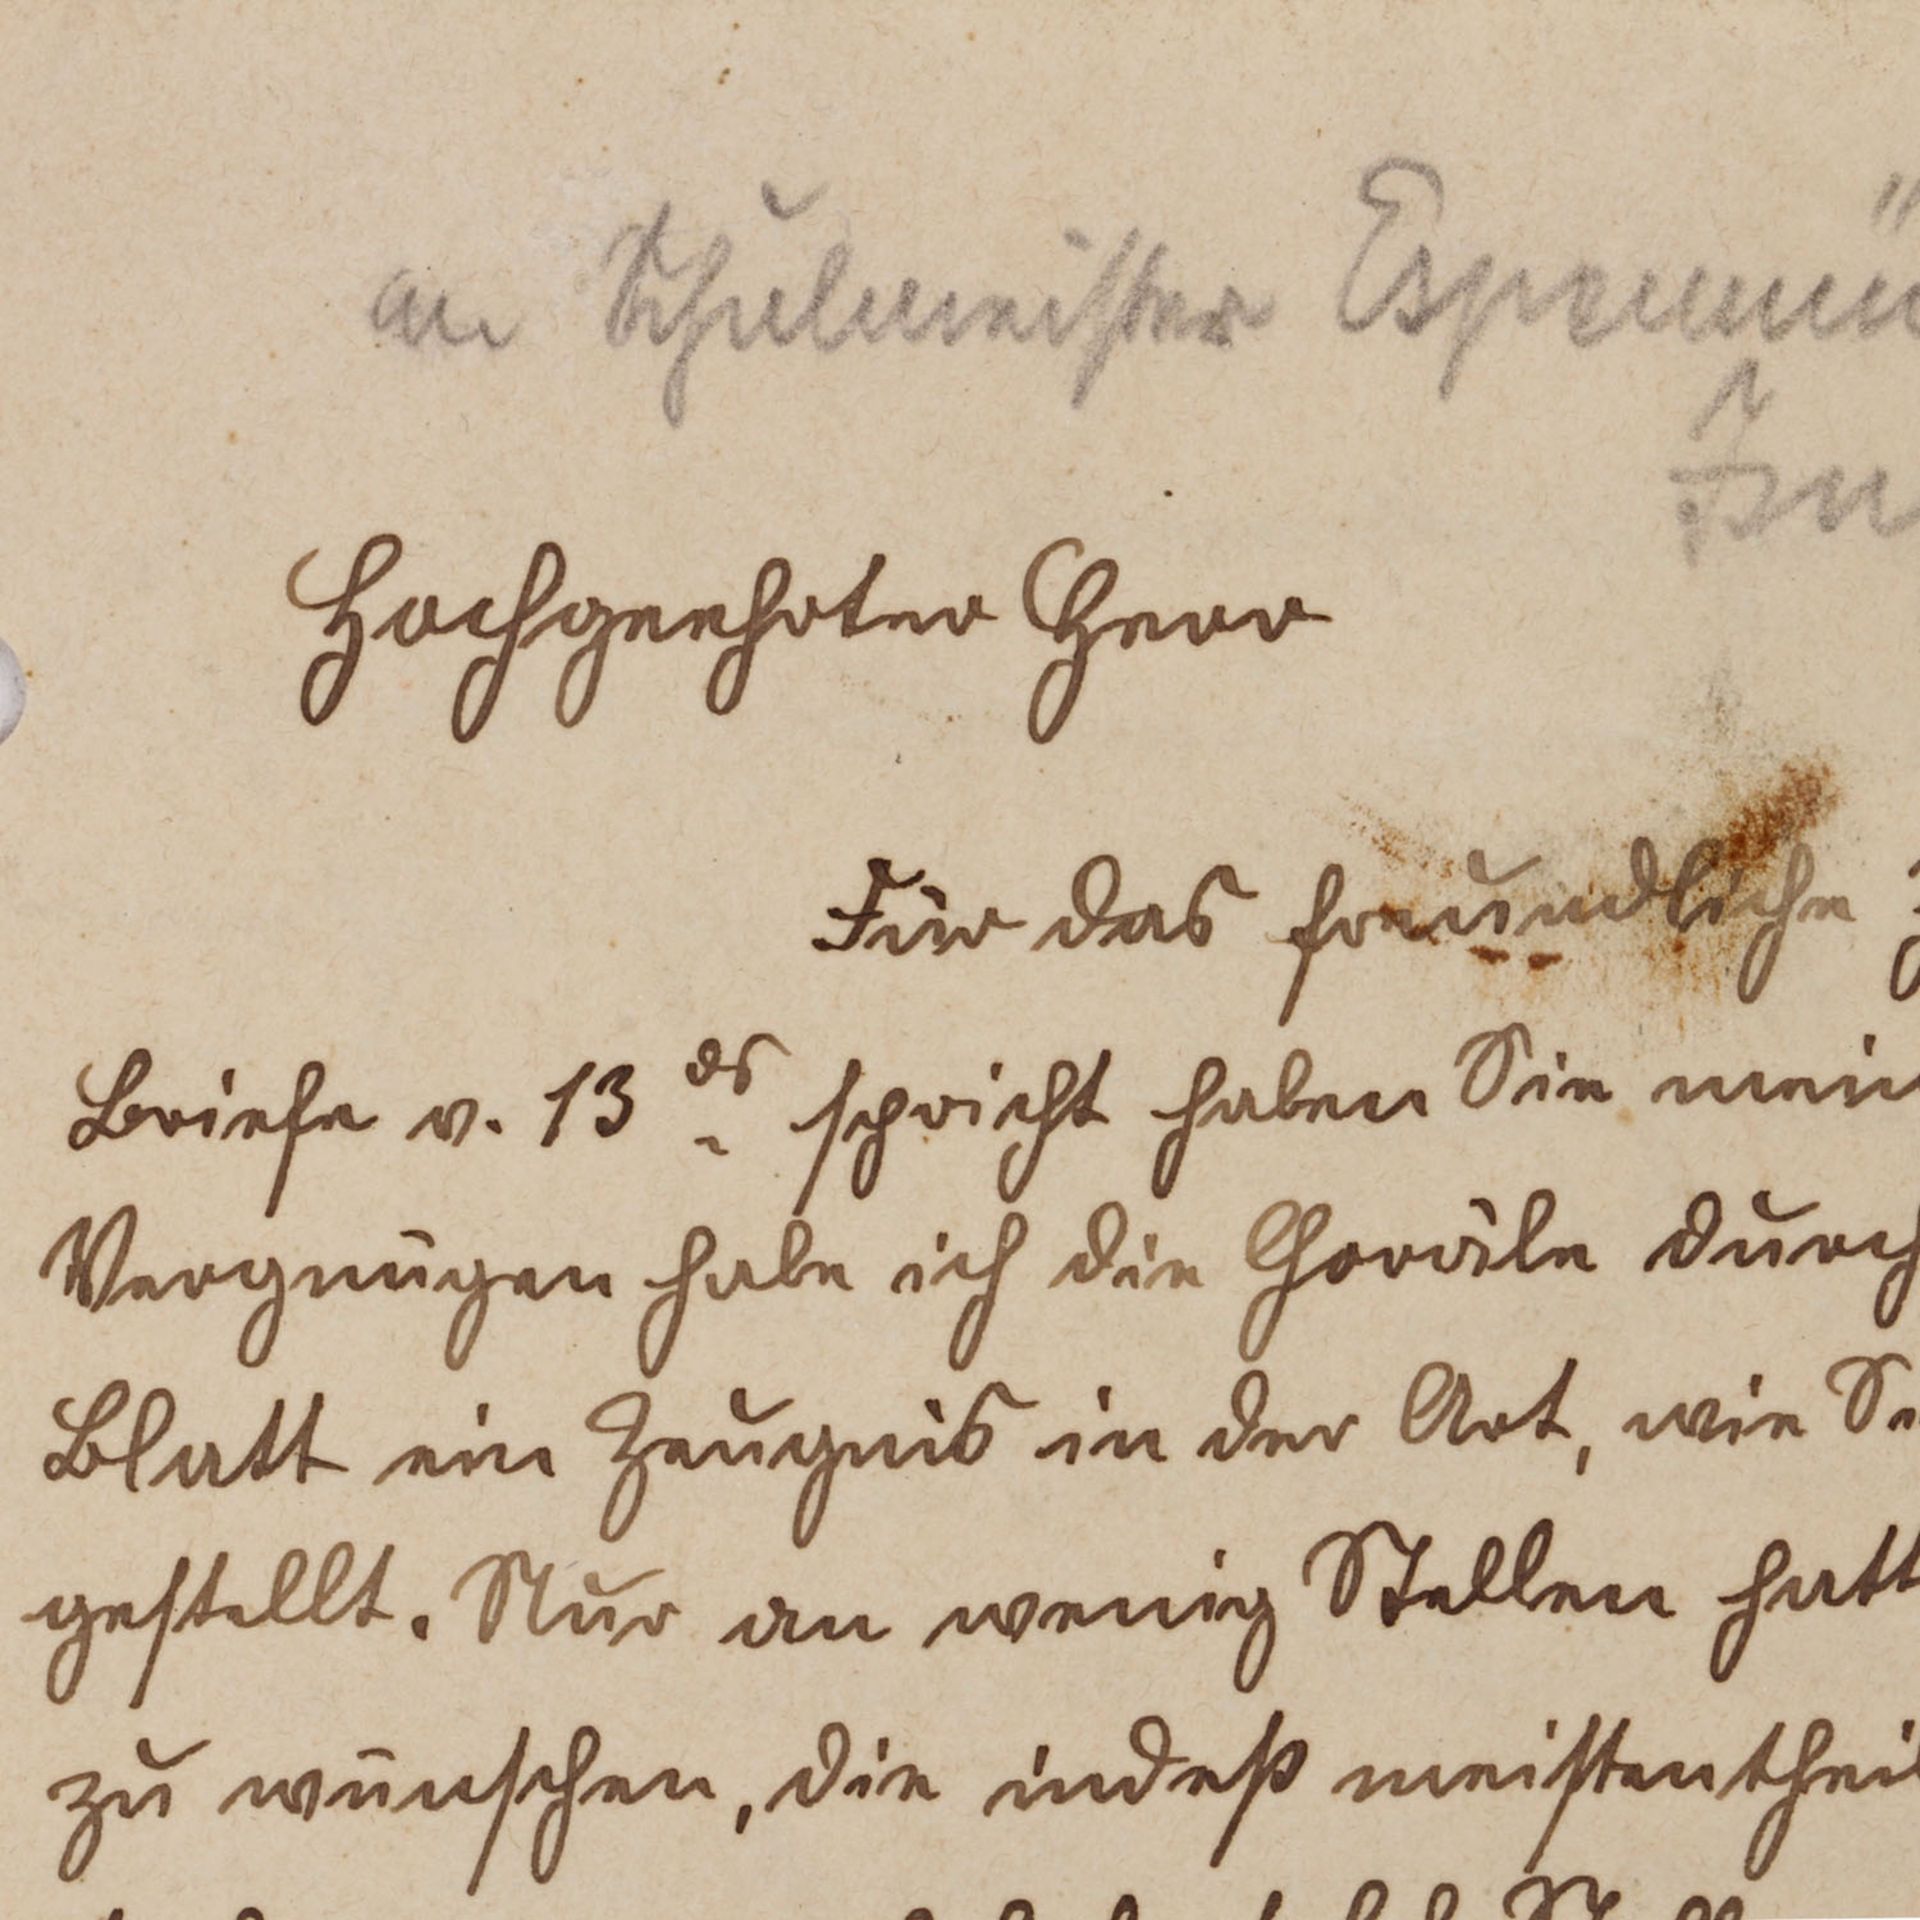 an Schulmeister
Hochgeehrter Herr
Für das freundliche
Briefe v. 13 ds spricht haben Sie mein
Vergnügen habe ich die Choräle durch
Blatt ein Zeugnis in der Art, wie Se
gestellt. Nur an wenig Stellen hatt
zu wünschen, die indeß meistentheil